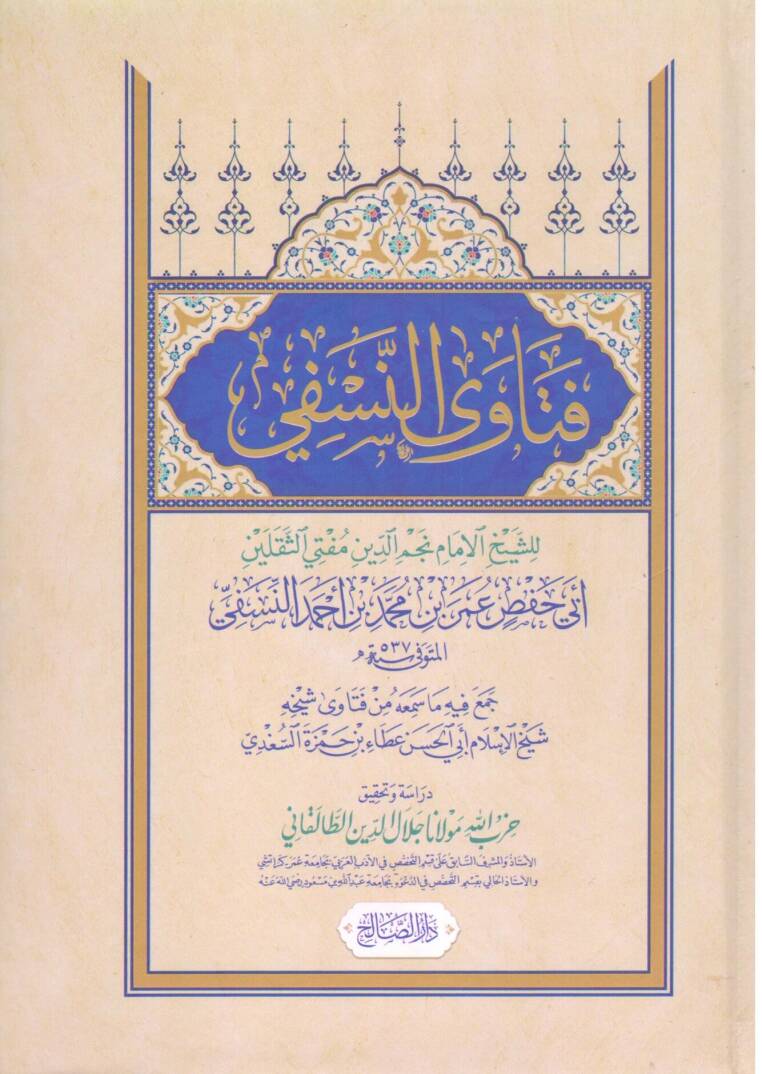 فَتَاوَى النَّسَفِي
لِلشَّيْخِ الإِمَامِ نَجْمِ الدِّينِ مُفْتِي الثَّقَلَيْنِ
أَبِي حَفْصٍ عُمَرَ ابْنِ مُحَمَّدِ بْنِ أَحْمَدَ النَّسَفِيِّ
المتوفى سنة ٥٣٧ هـ
جَمَعَ فِيهِ مَا سَمِعَهُ مِنْ فَتَاوَى شَيْخِهِ
شَيْخِ الإِسْلَامِ أَبِي الحَسَنِ عَطَاءِ بْنِ حَمْزَةَ السُّغْدِيّ
دِرَاسَة وَتَحْقِيق
حِزْبُ اللهِ مَوْلَانَا جَلَالُ الدِّينِ الطَّالَقَانِي
الأُسْتَاذُ وَالمُشْرِفُ السَّابِقُ عَلَى قِسْمِ التَّخَصُّصِ فِي الأَدَبِ العَرَبِيِّ بِجَامِعَةِ عُمَرَ كَرَاتْشِي
وَالأُسْتَاذ الحَالِي بِقِسْمِ التَّخَصُّصِ فِي الدَّعْوَةِ بِجَامِعَةِ عَبْدِ اللهِ بْنِ مَسْعُودٍ رَضِيَ اللهُ عَنْهُ
دَارُ الصَّالِح